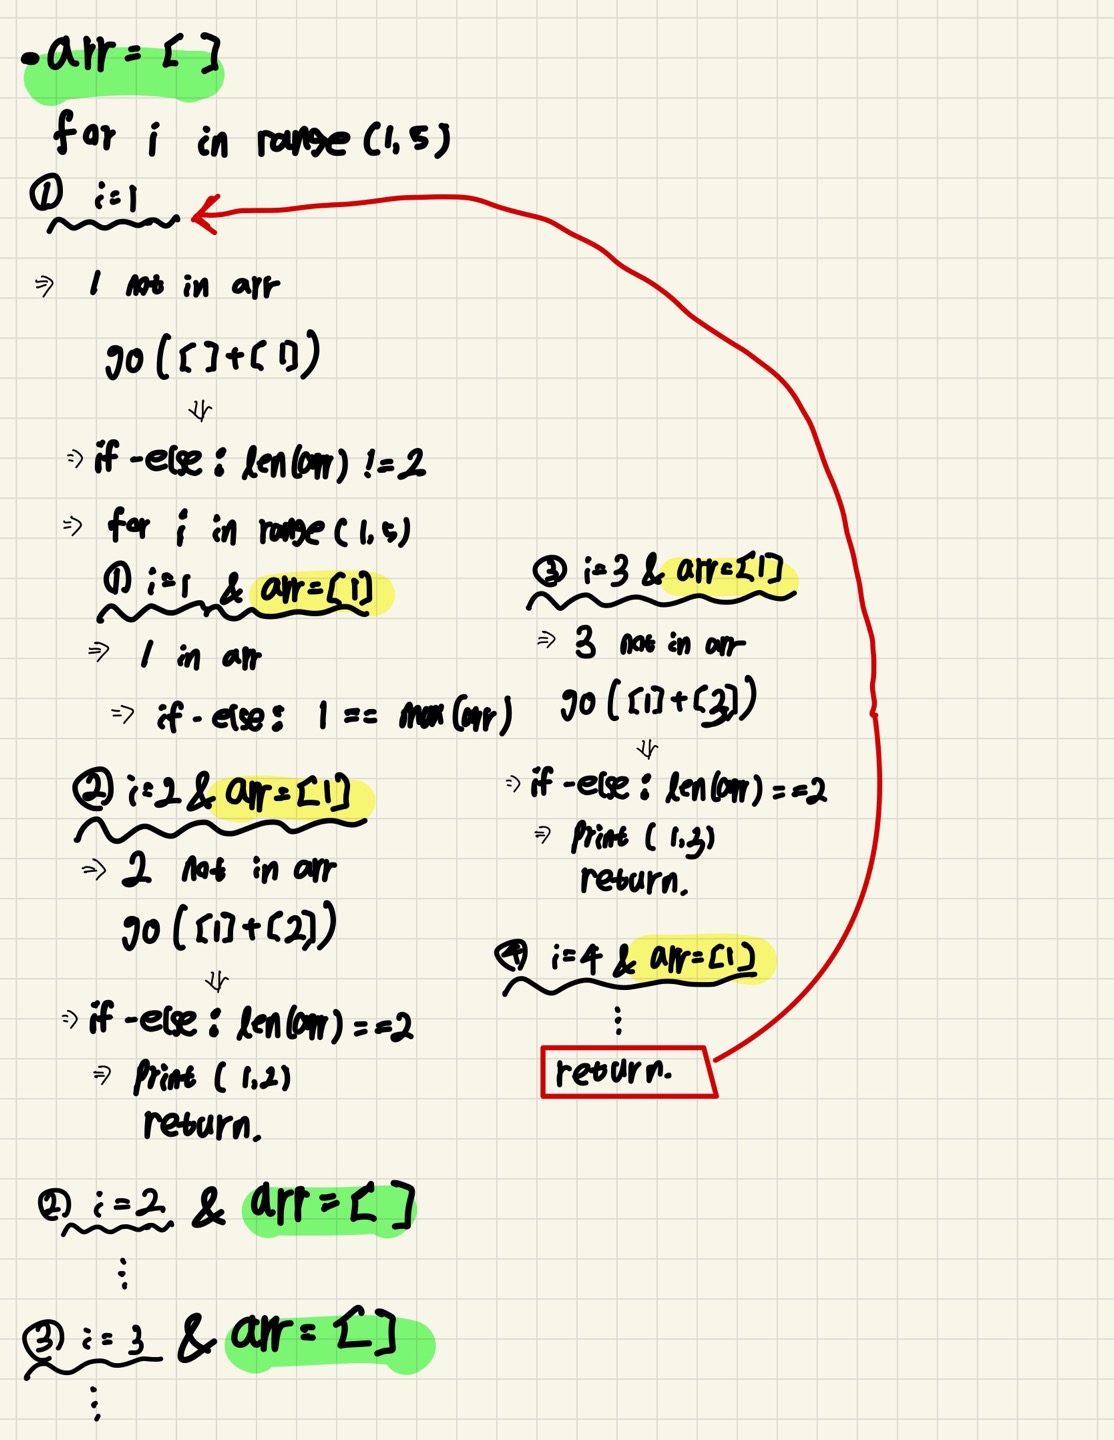 - arr = [ ]
for i in range (1, 5)
① i=1
⇒ 1 not in arr
go ( [ ] + [ 1] )
⇓
⇒ if - else : len(arr) != 2
⇒ for i in range ( 1, 5)
① i=1 & arr = [1]
⇒ 1 in arr
⇒ if - else : 1 == max (arr)
② i=2 & arr = [1]
⇒ 2 not in arr
go ( [1] + [2] )
⇓
⇒ if - else : len(arr) == 2
⇒ print ( 1,2)
return.
③ i=3 & arr=[1]
⇒ 3 not in arr
go ( [1] + [3] )
⇓
⇒ if - else : len(arr) == 2
⇒ print ( 1,3)
return.
④ i=4 & arr=[1]
⋮
return.
② i=2 & arr = [ ]
⋮
③ i= 3 & arr = [ ]
⋮